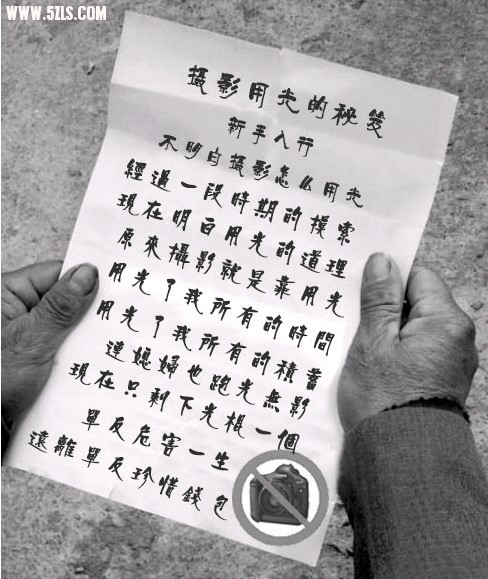 WWW.5ZLS.COM
攝影用光的秘笈
新手入行
不明白攝影怎么用光
經過一段時期的摸索
現在明白用光的道理
原來攝影就是靠用光
用光了我所有的時間
用光了我所有的積蓄
連媳婦也跑光無影
現在只剩下光棍一個
單反危害一生
遠離單反珍惜錢包